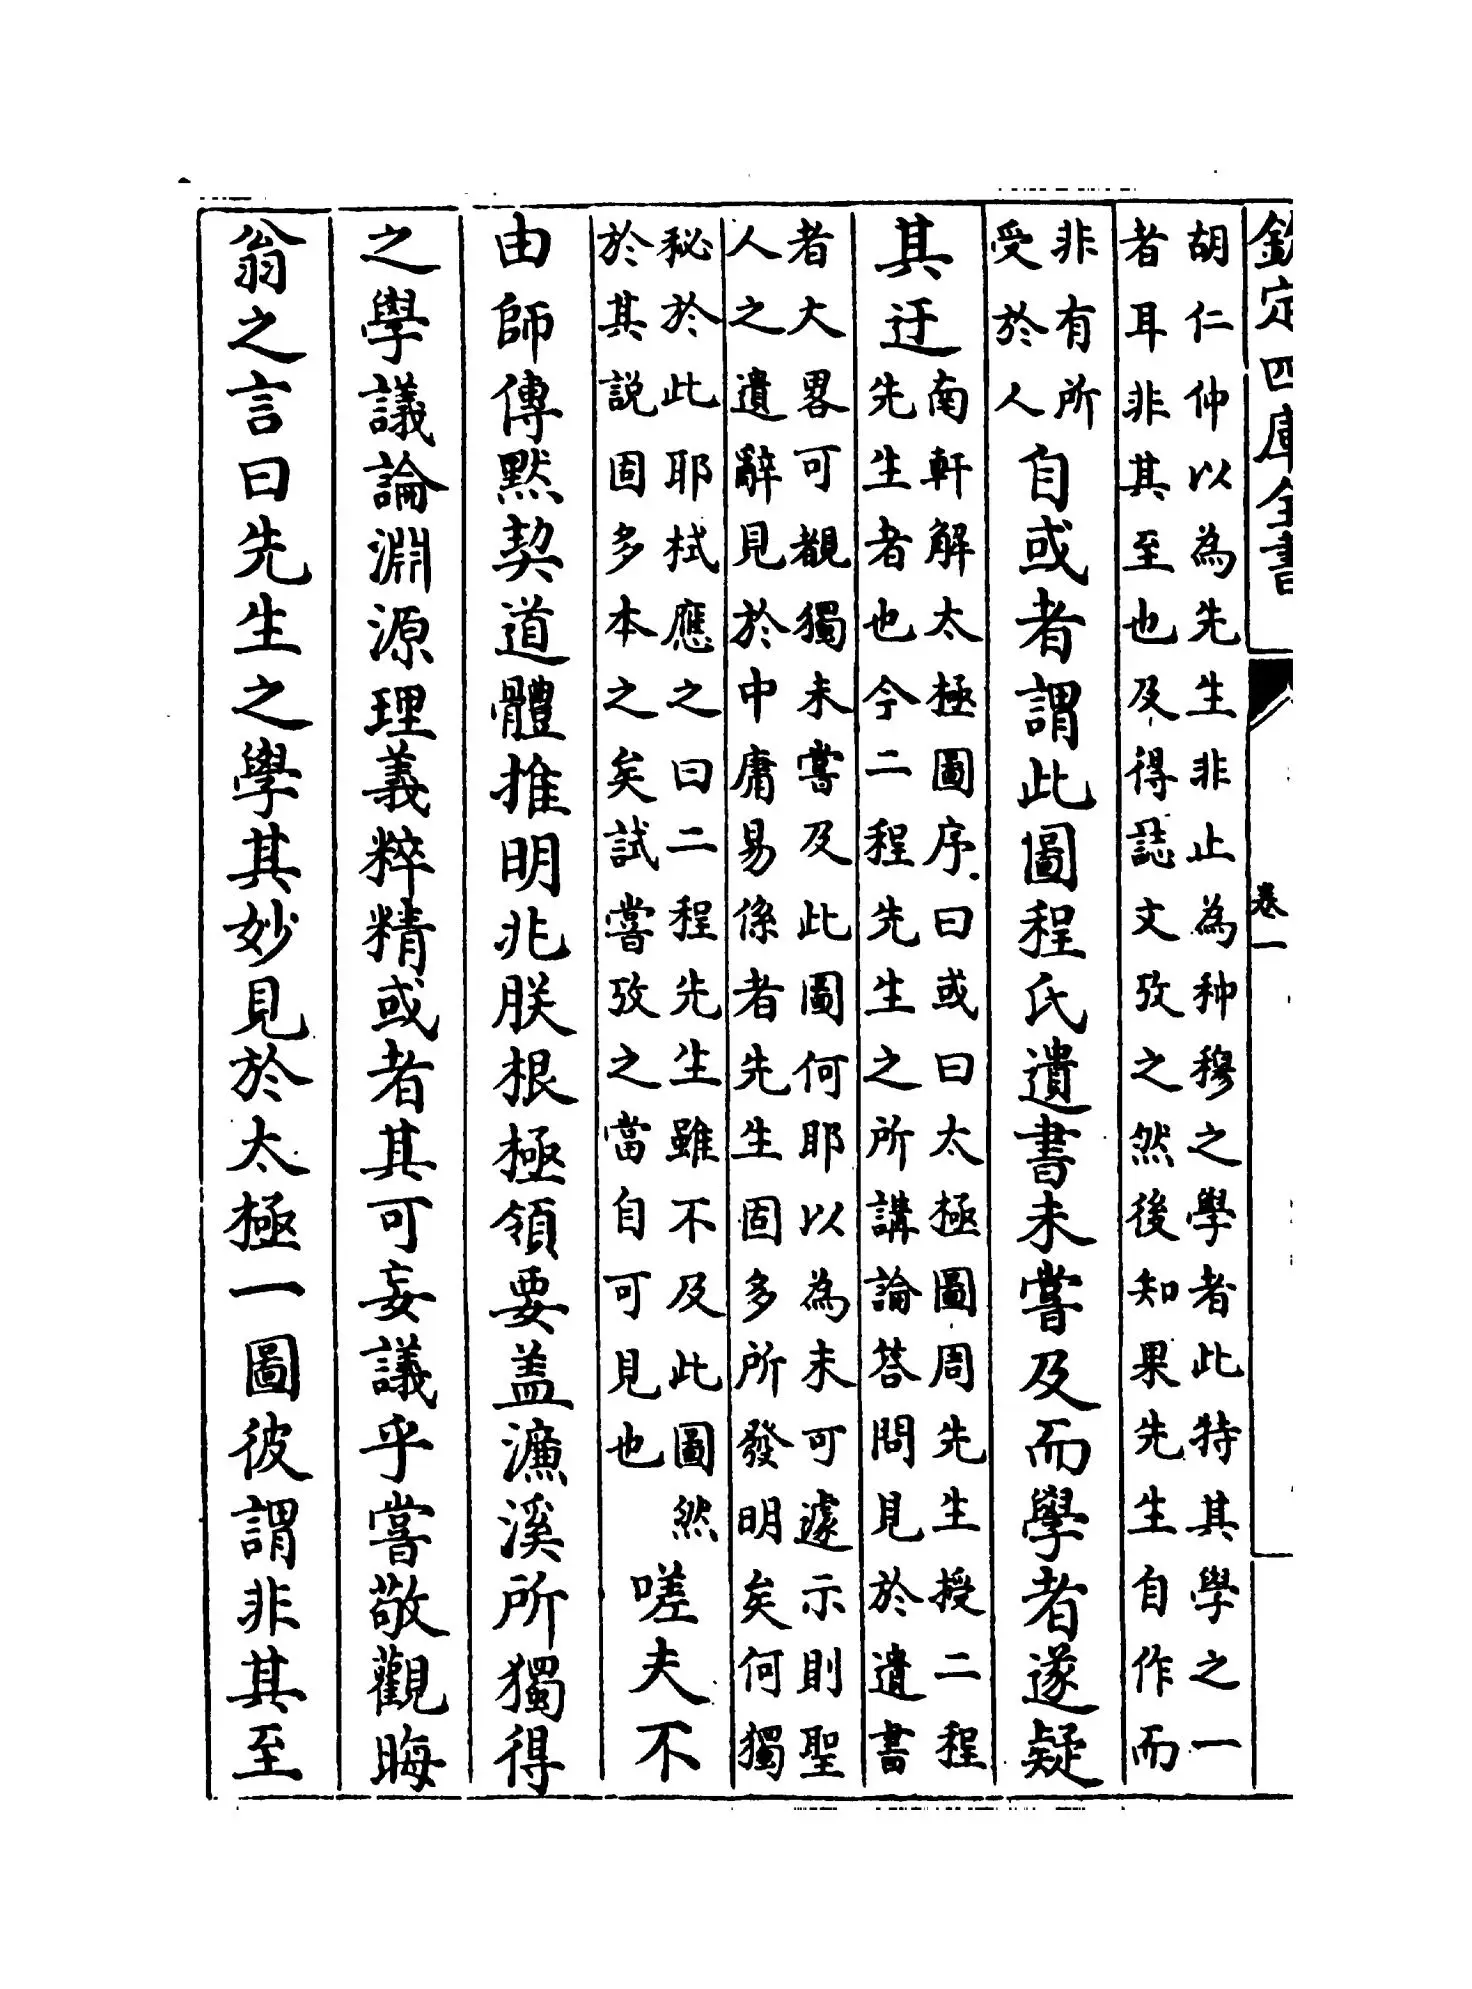 欽定四庫全書
卷一
胡仁仲以為先生非止為种穆之學者此特其學之一
者耳非其至也及得誌文攷之然後知果先生自作而
非有所
受於人
自或者謂此圖程氏遺書未嘗及而學者遂疑
其迂
南軒解太極圖序曰或曰太極圖周先生授二程
先生者也今二程先生之所講論答問見於遺書
者大畧可覩獨未嘗及此圖何耶以為未可遽示則聖
人之遺辭見於中庸易係者先生固多所發明矣何獨
秘於此耶栻應之曰二程先生雖不及此圖然
於其説固多本之矣試嘗攷之當自可見也
嗟夫不
由師傳黙契道體推明兆朕根極領要盖濂溪所獨得
之學議論淵源理義粹精或者其可妄議乎嘗敬觀晦
翁之言曰先生之學其妙見於太極一圖彼謂非其至